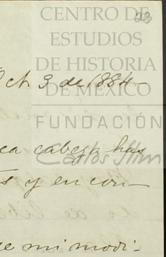 CENTRO DE
ESTUDIOS
DE HISTORIA
DE MÉXICO
FUNDACIÓN
Carlos Slim
Oct 3 de 1884
cabeza has
y en con-
mi modi-